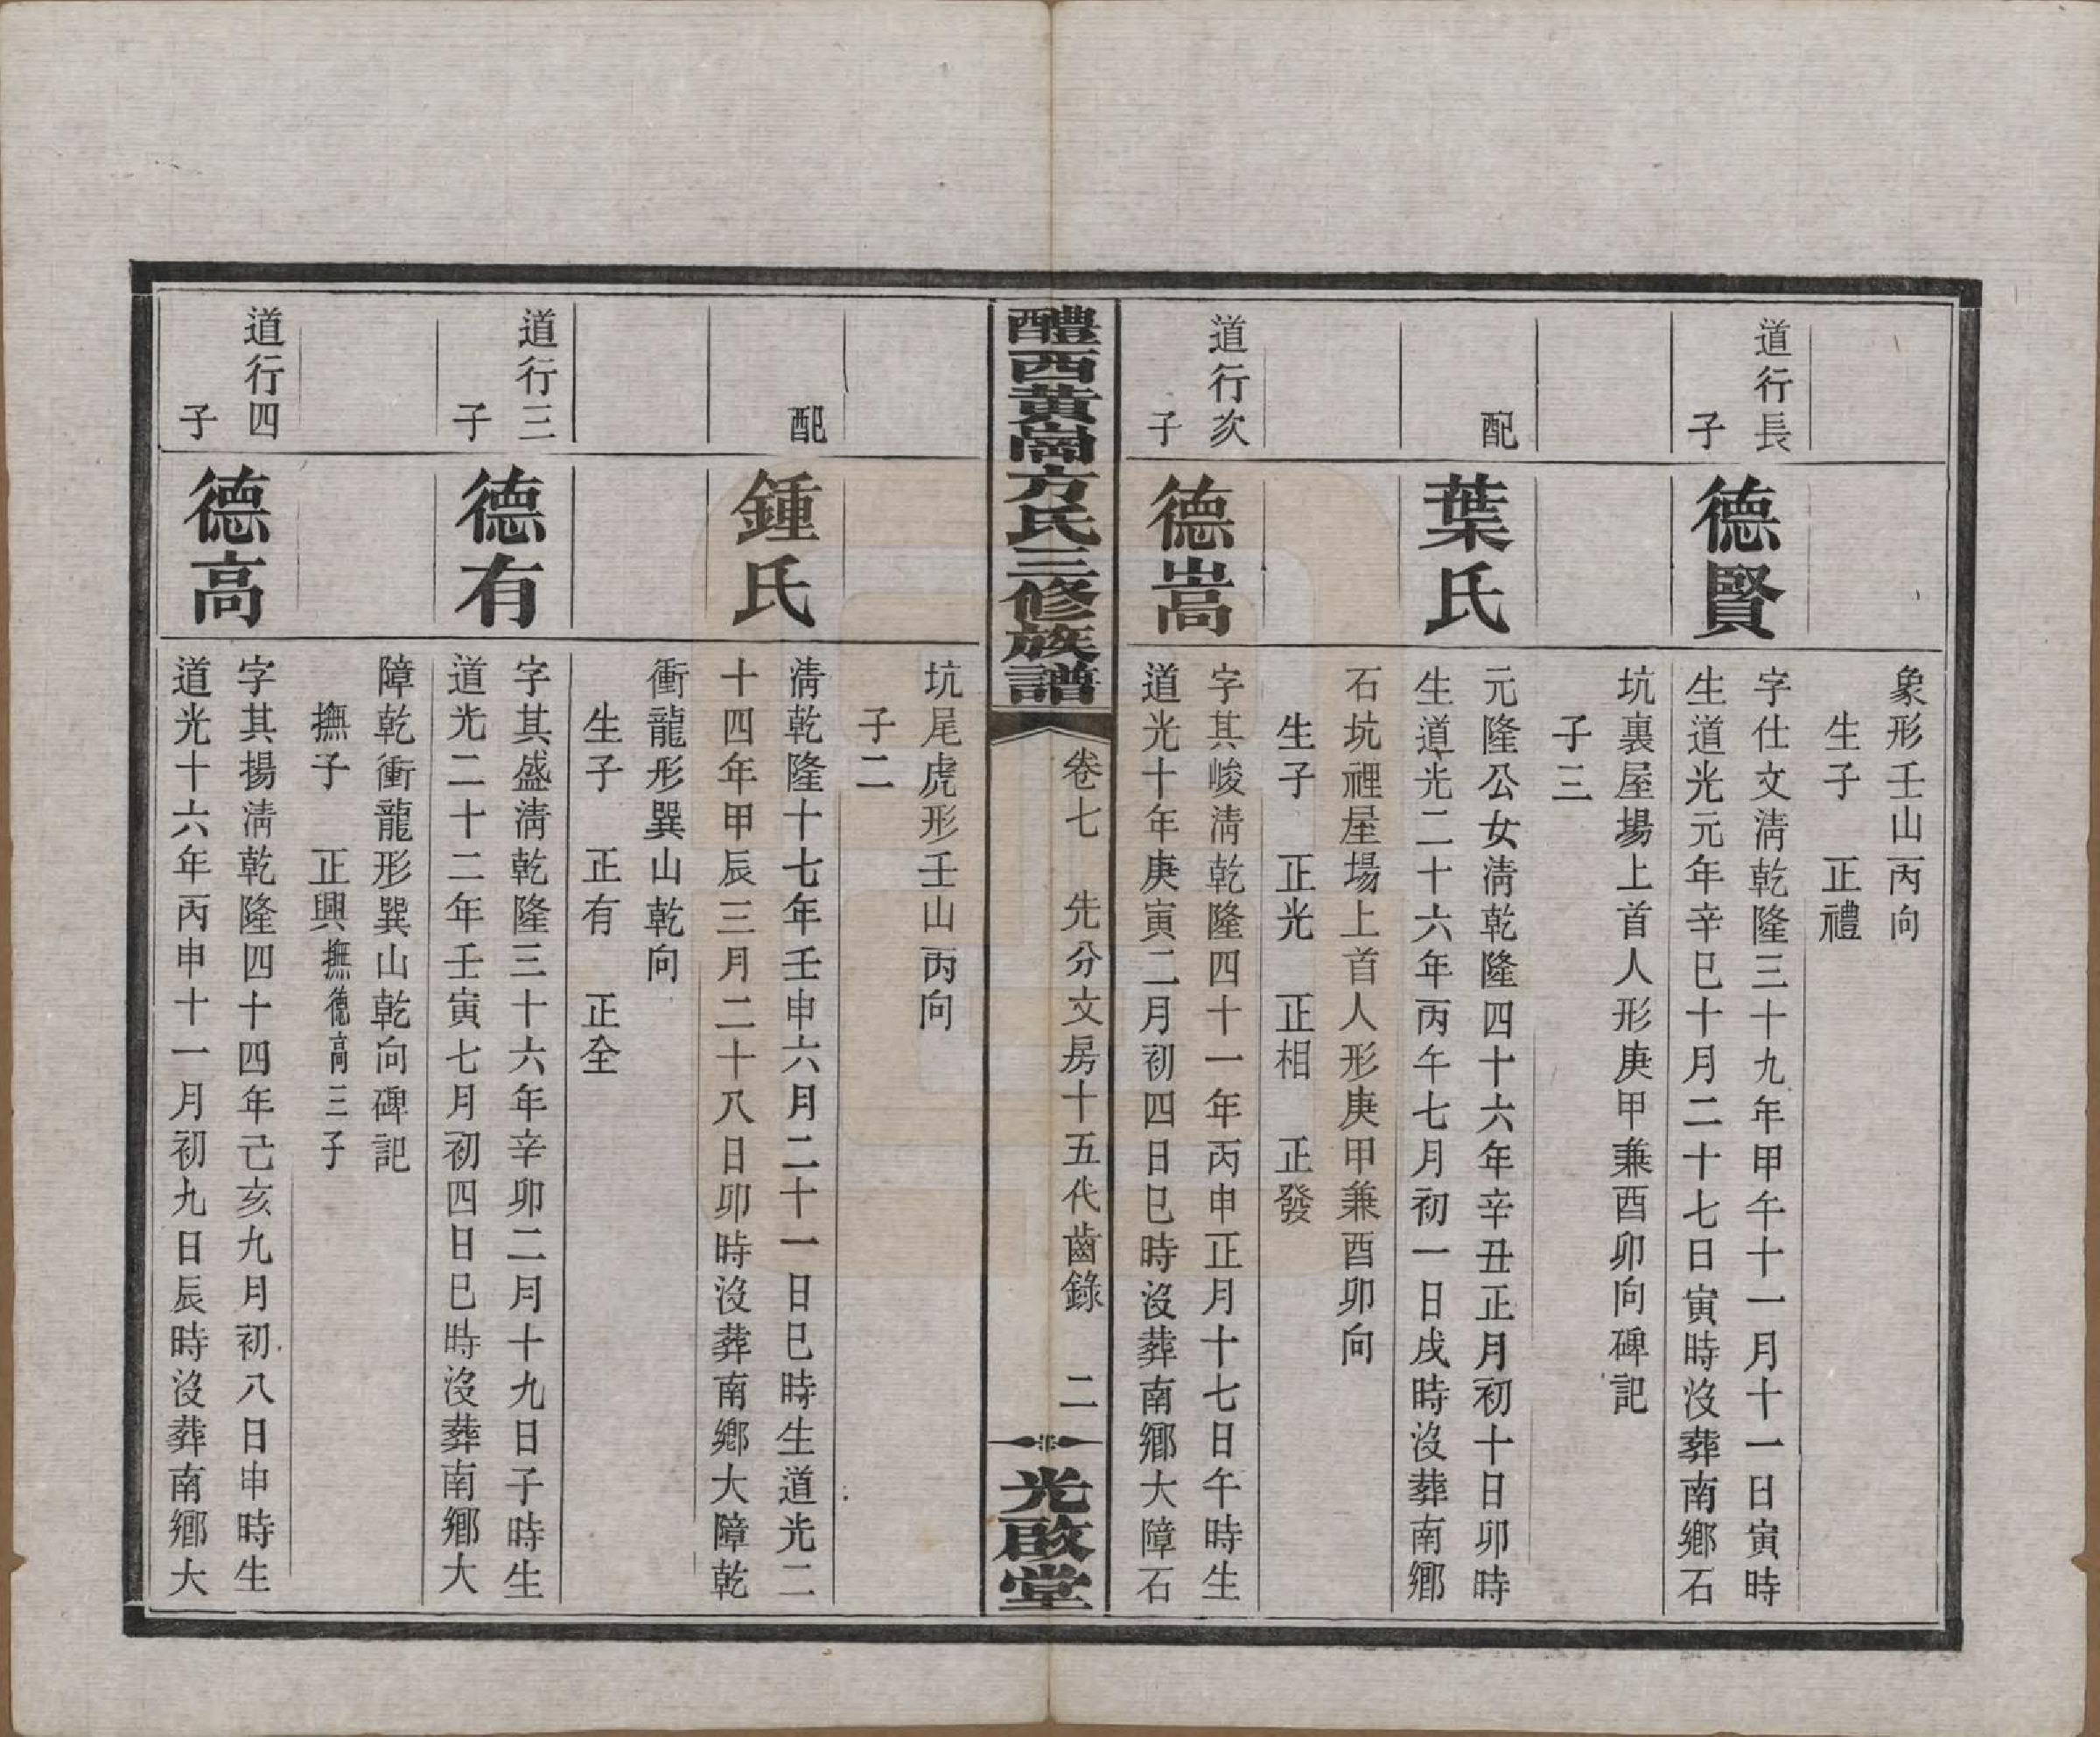 象形壬山丙向
生子 正禮
道行長子
德賢
字仕文淸乾隆三十九年甲午十一月十一日寅時
生道光元年辛巳十月二十七日寅時沒葬南鄕石
坑裏屋場上首人形庚甲兼酉卯向碑記
子三
配
葉氏
元隆公女淸乾隆四十六年辛丑正月初十日卯時
生道光二十六年丙午七月初一日戌時沒葬南鄕
石坑裡屋場上首人形庚甲兼酉卯向
生子 正光 正相 正發
道行次子
德嵩
字其峻淸乾隆四十一年丙申正月十七日午時生
道光十年庚寅二月初四日巳時沒葬南鄕大障石
醴西黃崗方氏三修族譜
卷七 先分文房十五代齒錄 二
光啟堂
坑尾虎形壬山丙向
子二
配
鍾氏
淸乾隆十七年壬申六月二十一日巳時生道光二
十四年甲辰三月二十八日卯時沒葬南鄕大障乾
衝龍形巽山乾向
生子 正有 正全
道行三子
德有
字其盛淸乾隆三十六年辛卯二月十九日子時生
道光二十二年壬寅七月初四日巳時沒葬南鄕大
障乾衝龍形巽山乾向碑記
撫子 正興撫德高三子
道行四子
德高
字其揚淸乾隆四十四年己亥九月初八日申時生
道光十六年丙申十一月初九日辰時沒葬南鄕大